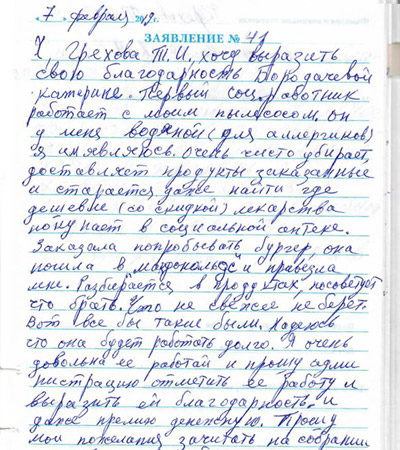 « 7 » февраля 2019г.
ЗАЯВЛЕНИЕ № 41
Я, Грехова Т.И, хочу выразить
свою благодарность Бородачевой
Катерине. Первый соц. работник
работает с моим пылесосом, он
у меня водяной (для аллергиков)
Я им являюсь. Очень чисто убирает,
доставляет продукты заказанные
и старается даже найти где
дешевле (со скидкой) лекарства
покупает в социальной аптеке.
Заказала попробывать бургер, она
пошла в "макдональдс" и привезла
мне. Разбирается в продуктах посоветует
что брать. Что не свежее не берет.
Вот все бы такие были. Надеюсь
что она будет работать долго. Я очень
довольна ее работай и прошу адми
нистрацию отметить ее работу и
выразить ей благодарность, и
даже премию денежную. Прошу
мои пожелания зачитать на собрании